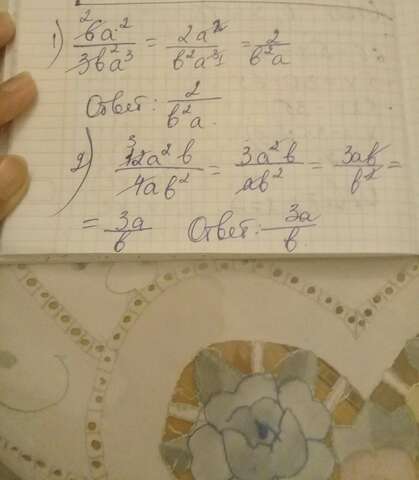 1) 6a² / 3b²a³ = 2a² / b²a³ = 2 / b²a
Ответ: 2 / b²a.
2) 12a²b / 4ab² = 3a²b / ab² = 3ab / b² =
= 3a / b Ответ: 3a / b.